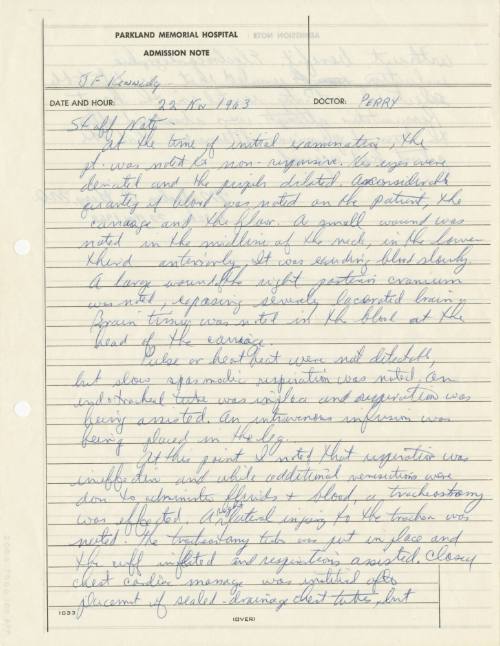 PARKLAND MEMORIAL HOSPITAL
ADMISSION NOTE
J F Kennedy
DATE AND HOUR: 22 Nov 1963 DOCTOR: PERRY
Staff Note -
At the time of initial examination, the
pt. was noted to non-responsive. His eyes were
deviated and the pupils dilated. A considerable
quantity of blood was noted on the patient, the
carriage and the floor. A small wound was
noted in the midline of the neck, in the lower
third anteriorly. It was exuding blood slowly.
A large wound the right posterior cranium
was noted, exposing severely lacerated brain.
Brain tissue was noted in the blood at the
head of the carriage.
Pulse or heart beat were not detectable,
but slow spasmodic respiration was noted. An
endotracheal tube was in place and respiration was
being assisted. An intravenous infusion was
being placed in the leg.
At this point I noted that respiration was
ineffective and while additional venisections were
done to administer fluids + blood, a tracheostomy
was effected. A right lateral injury to the trachea was
noted. The tracheostomy tube was put in place and
the cuff inflated and respirations assisted. Closed
chest cardiac massage was instituted after
placement of sealed-drainage chest tubes, but
1033
(OVER)